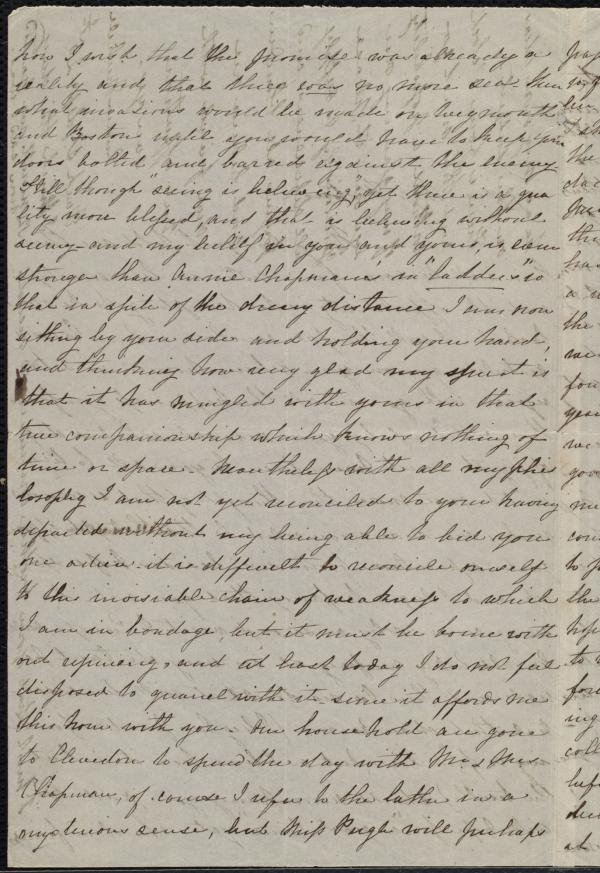 how I wish that the promise was already a
reality and that there was no more sea. then
what invasions would be made on Weymouth
and Boston until you would have to keep your
doors bolted and barred against the enemy.
Still though "seeing is believing", yet there is a qua
lity more blessed, and that is believing without
seeing - and my belief in you and yours is even
stronger than Annie Chapman's in "ladders" so
that in spite of the dreary distance I am now
sitting by your side and holding your hand,
and thinking how very glad my spirit is
that it has mingled with yours in that
true companionship which knows nothing of
time or space. Nevertheless with all my philo
losophy I am not yet reconciled to your having
departed without my being able to bid you
one adieu - it is difficult to reconcile oneself
to this invisible chain of weakness to which
I am in bondage, but it must be borne with
out repining, and at least today I do not feel
disposed to quarrel with it since it affords me
this hour with you. Our household are gone
to Clevedon to spend the day with Mr & Mrs
Chapman, of course I refer to the latter in a
mysterious sense, but Miss Pugh will perhaps